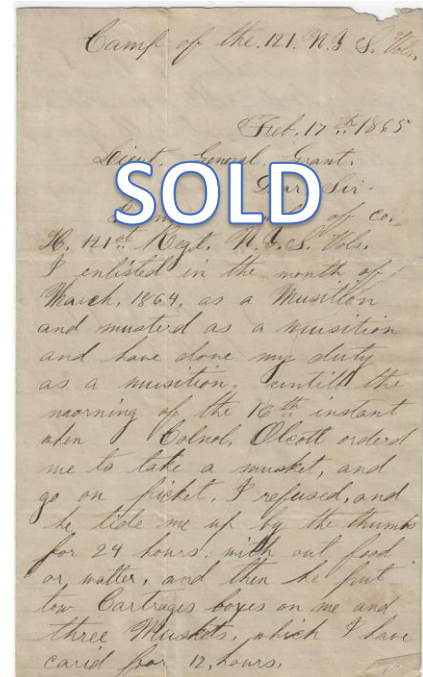 Camp of the. 121. N.Y S. Vols.
Feb. 17th. 1865
Lieut. General. Grant.
Dear Sir.
SOLD
of co.
H. 121st Regt. N.Y.S. Vols.
I enlisted in the month of
March, 1864, as a Musition
and musterd as a musition
and have done my duty
as a musition. untill the
morning of the 16th instant
when Colnol, Olcott orderd
me to take a musket, and
go on picket. I refused, and
he tide me up by the thumbs
for 24 hours. with out food
or watter, and then he put
tow Cartrages boxes on me and
three Muskets. which I have
carid for 12, hours.